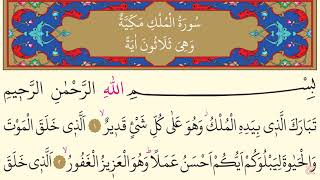 سُورَةُ الْمُلْكِ مَكِّيَّةٌ
وَهِىَ ثَلَاثُونَ اٰيَةً
بِسْمِ اللّٰهِ الرَّحْمٰنِ الرَّحٖيمِ
تَبَارَكَ الَّذٖى بِيَدِهِ الْمُلْكُ ۘ وَهُوَ عَلٰى كُلِّ شَىْءٍ قَدٖيرٌۙ ١ اَلَّذٖى خَلَقَ الْمَوْتَ
وَالْحَيٰوةَ لِيَبْلُوَكُمْ اَيُّكُمْ اَحْسَنُ عَمَلًاؕ وَهُوَ الْعَزٖيزُ الْغَفُورُۙ ٢ اَلَّذٖى خَلَقَ